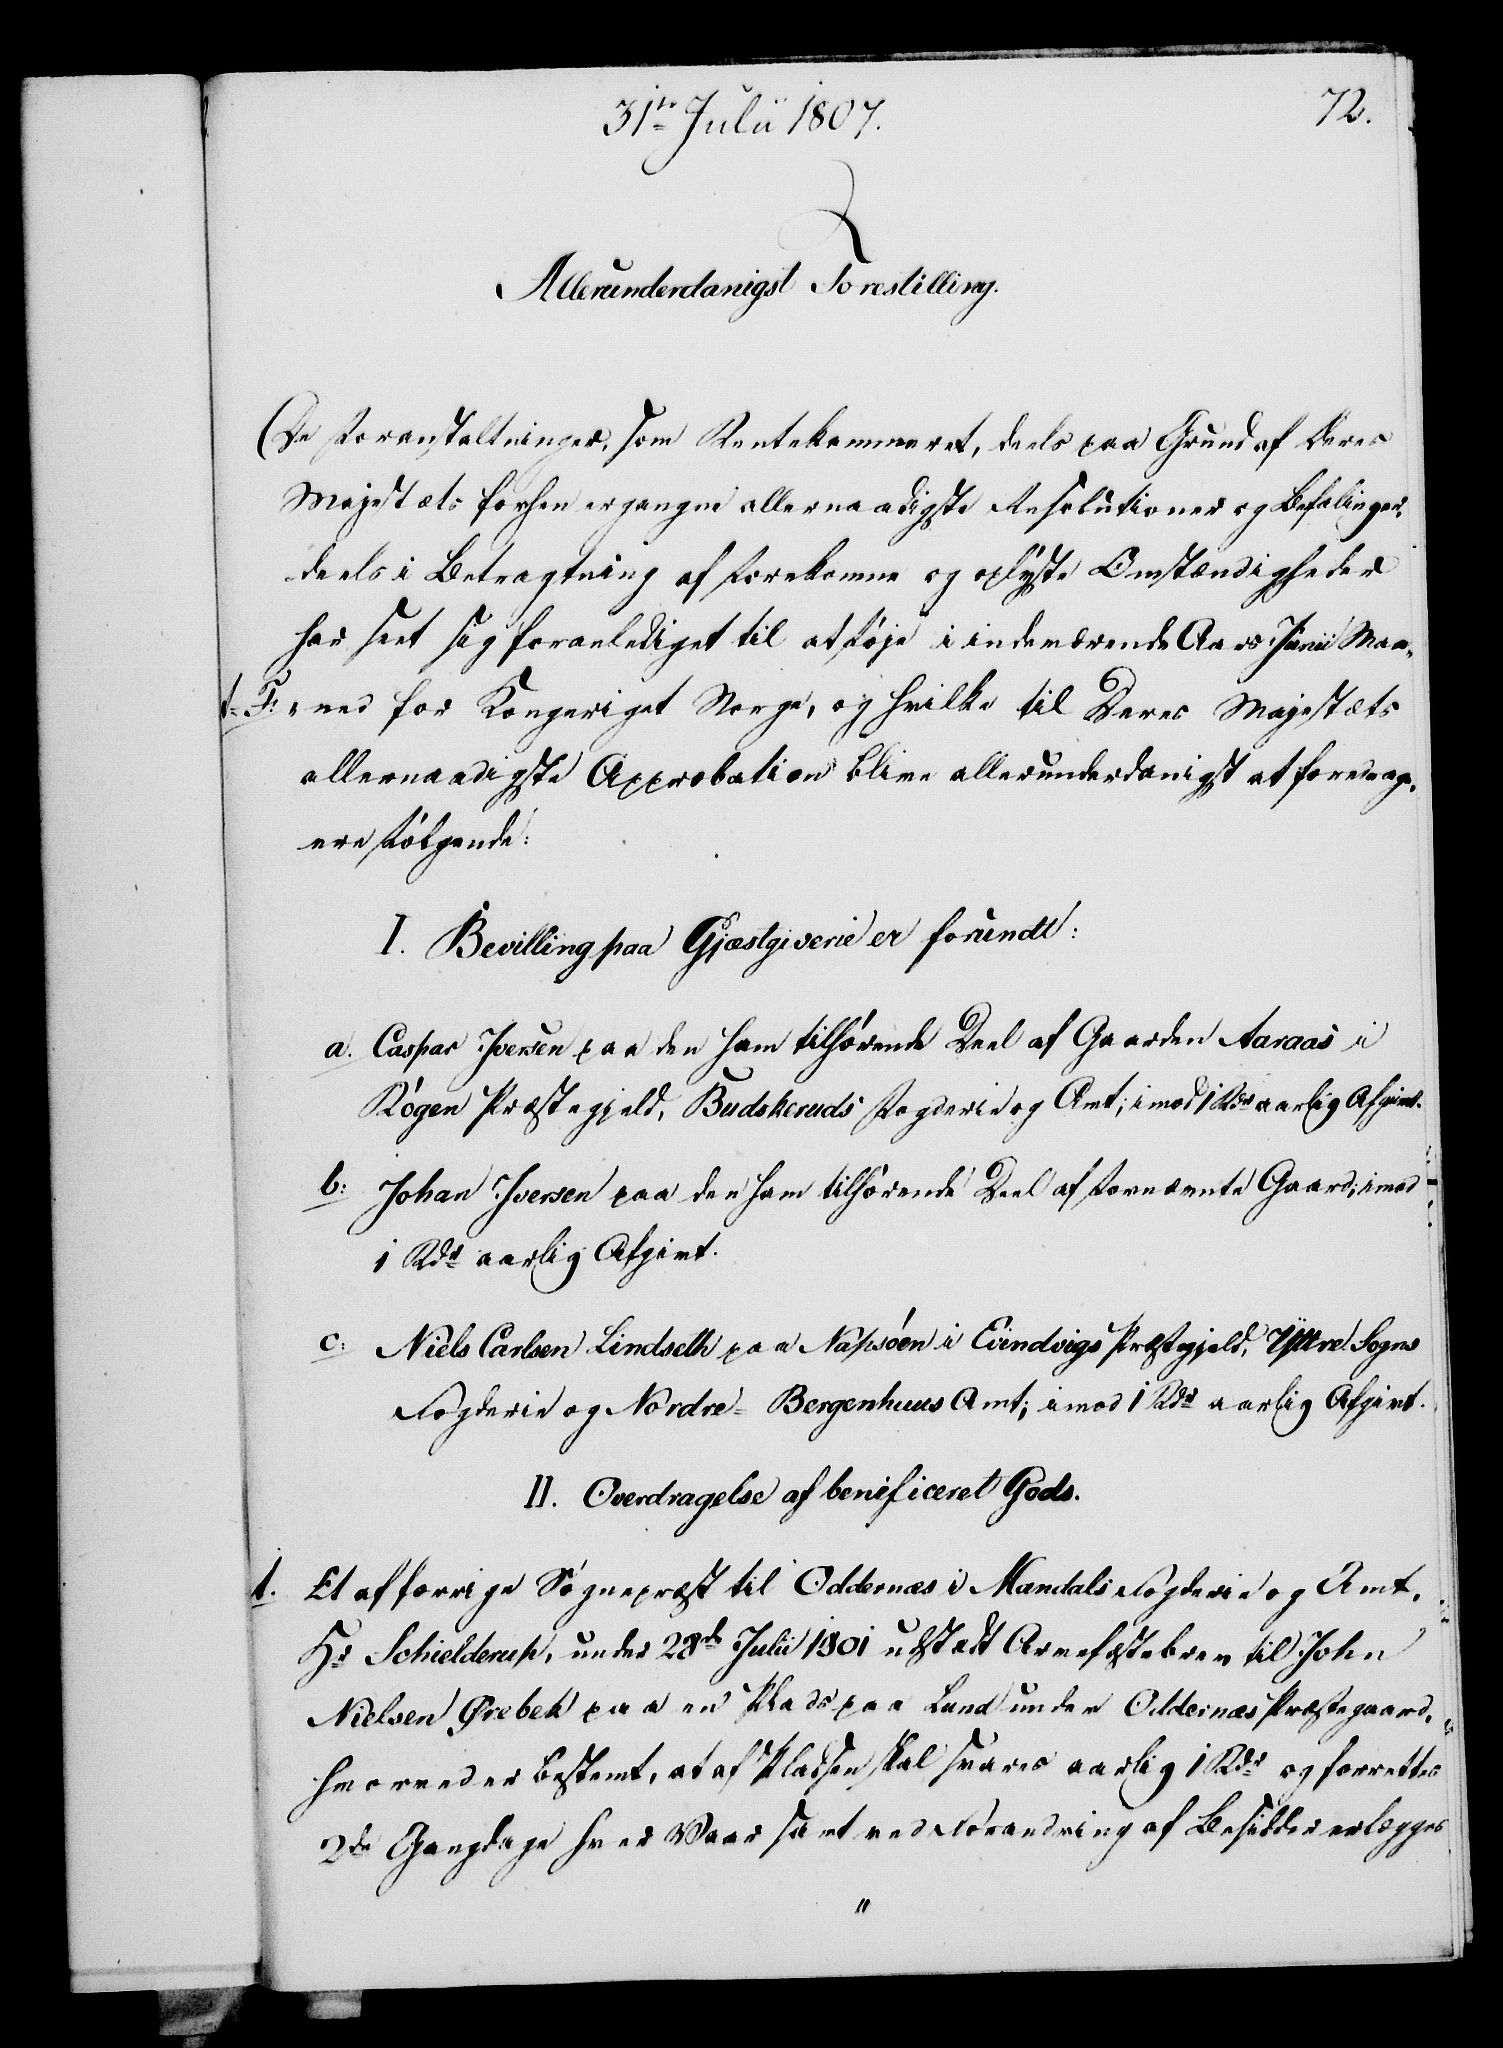 31te Julii 1807.
72.
Allerunderdanigst Forestilling.
De Foranstaltninger, som Rentekammeret, deels paa Grund af Deres
Majestæts forhen ergangne allernaadigste Resolutioner og Befalinger,
deels i Betragtning af forekomne og oplyste Omstændigheder
har seet sig foranlediget til at føje i indeværende Aars Junii Maa-
ned for Kongeriget Norge, og hvilke til Deres Majestæts
allernaadigste Approbation blive allerunderdanigst at foredrage,
ere følgende:
I. Bevilling paa Gjæstgiverie er forundt:
a. Caspar Iversen paa den ham tilhørende Deel af Gaarden Aaraas i
Røgen Præstegjeld, Budskeruds Fogderie og Amt; imod 1 Rdr aarlig Afgivt.
b: Johan Iversen paa den ham tilhørende Deel af fornævnte Gaard; imod
1 Rdr aarlig Afgivt.
c: Niels Carlsen Lindseth paa Napsøen i Evindvigs Præstegjeld, Yttre Sogns
Fogderie og Nordre-Bergenhuus Amt; imod 1 Rdr aarlig Afgivt.
II. Overdragelse af benificeret Gods.
1. Et af forrige Sognepræst til Oddernæs i Mandals Fogderie og Amt,
Hr Schielderup, under 28de Julii 1801 udstædt Arvefæstebrev til John
Nielsen Ørebek paa en Plads paa Lund under Oddernæs Præstegaard,
hvorved er bestemt, at af Pladsen skal svares aarlig 1 Rdr og forrettes
2de Gangdage hver Vaar samt ved Forandring af Besidder erlægges
"